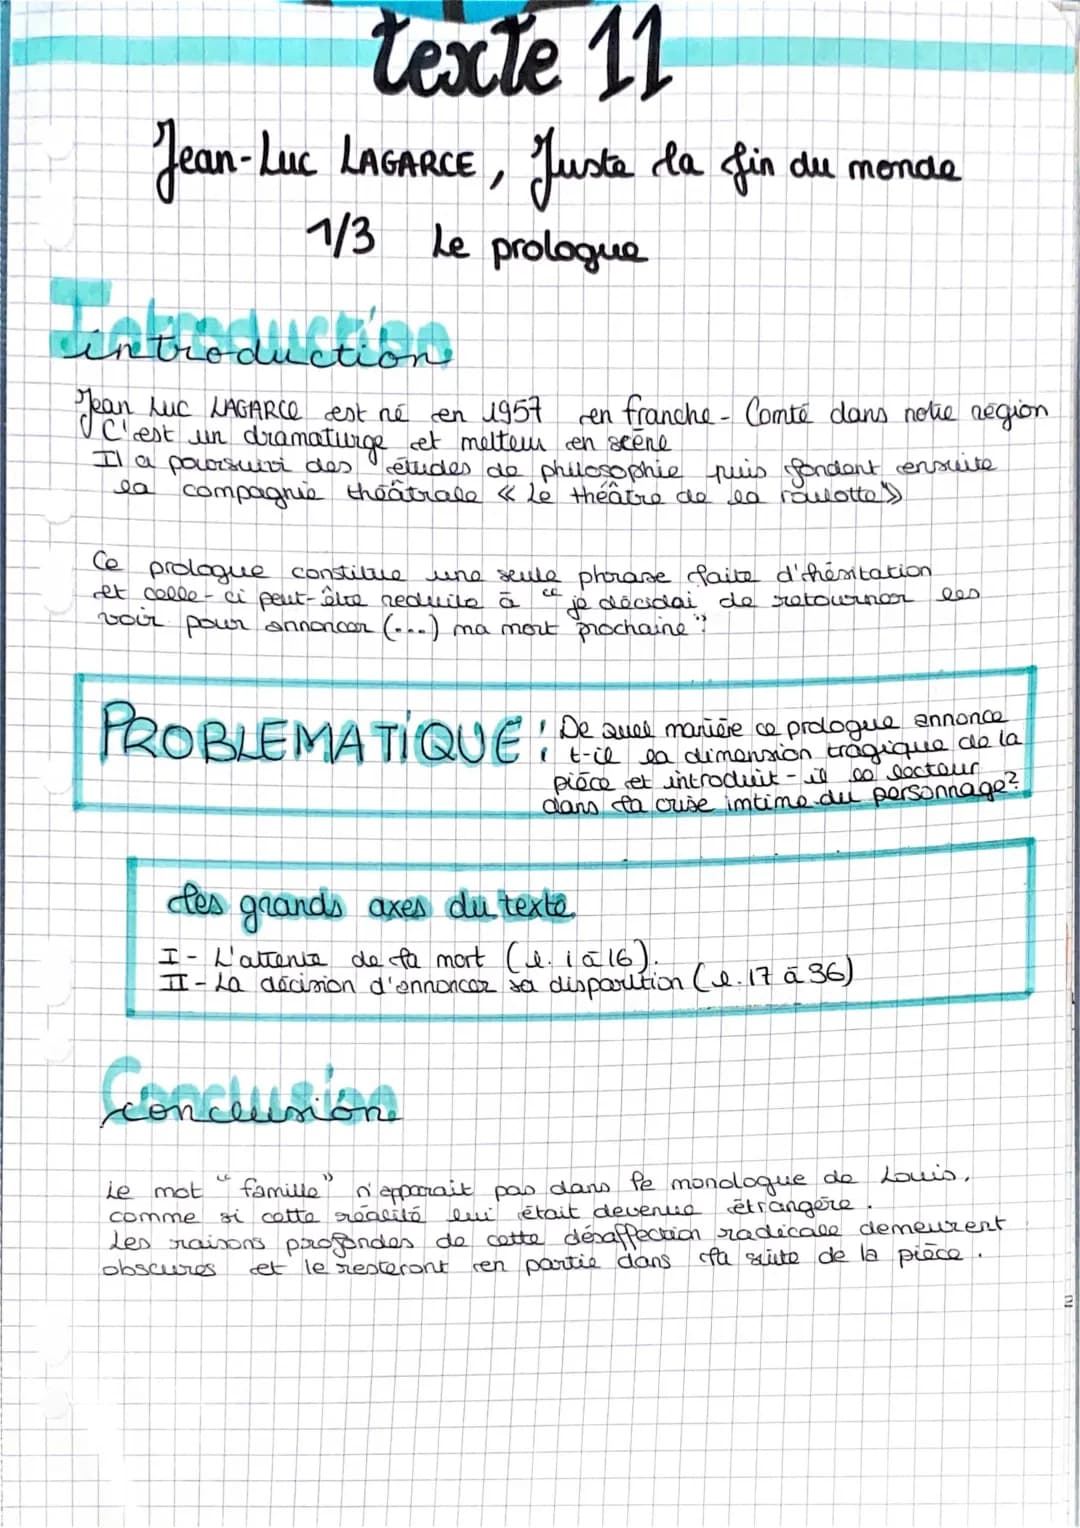 texte 11
Jean-Luc LAGARCE, Juste la fin du monde
1/3 Le prologue
Introduction
introduction
Jean Luc LAGARCE est né en 1957 en franche-Comté dans notre région
C'est un dramaturge et metteur en scène
Il a poursuivi des études de philosophie puis fondant ensuite
la compagnie théâtrale « Le théâtre de la roulotte »
Ce prologue constitue une seule phrase faite d'hésitation
et celle-ci peut-être réduite à "je décidai de retourner les
voir pour annoncer (...) ma mort prochaine".
PROBLEMATIQUE : De quel manière ce prologue annonce
t-il la dimension tragique de la
pièce et introduit-il le lecteur
dans la crise intime du personnage?
Les grands axes du texte
I- L'attente de la mort (l. 1 à 16).
II- La décision d'annoncer sa disparition (l. 17 à 36)
Conclusion
conclusion
Le mot "famille" n'apparait pas dans le monologue de Louis,
comme si cette réalité lui était devenue étrangère.
Les raisons profondes de cette désaffection radicale demeurent
obscures et le resteront en partie dans la suite de la pièce.
2